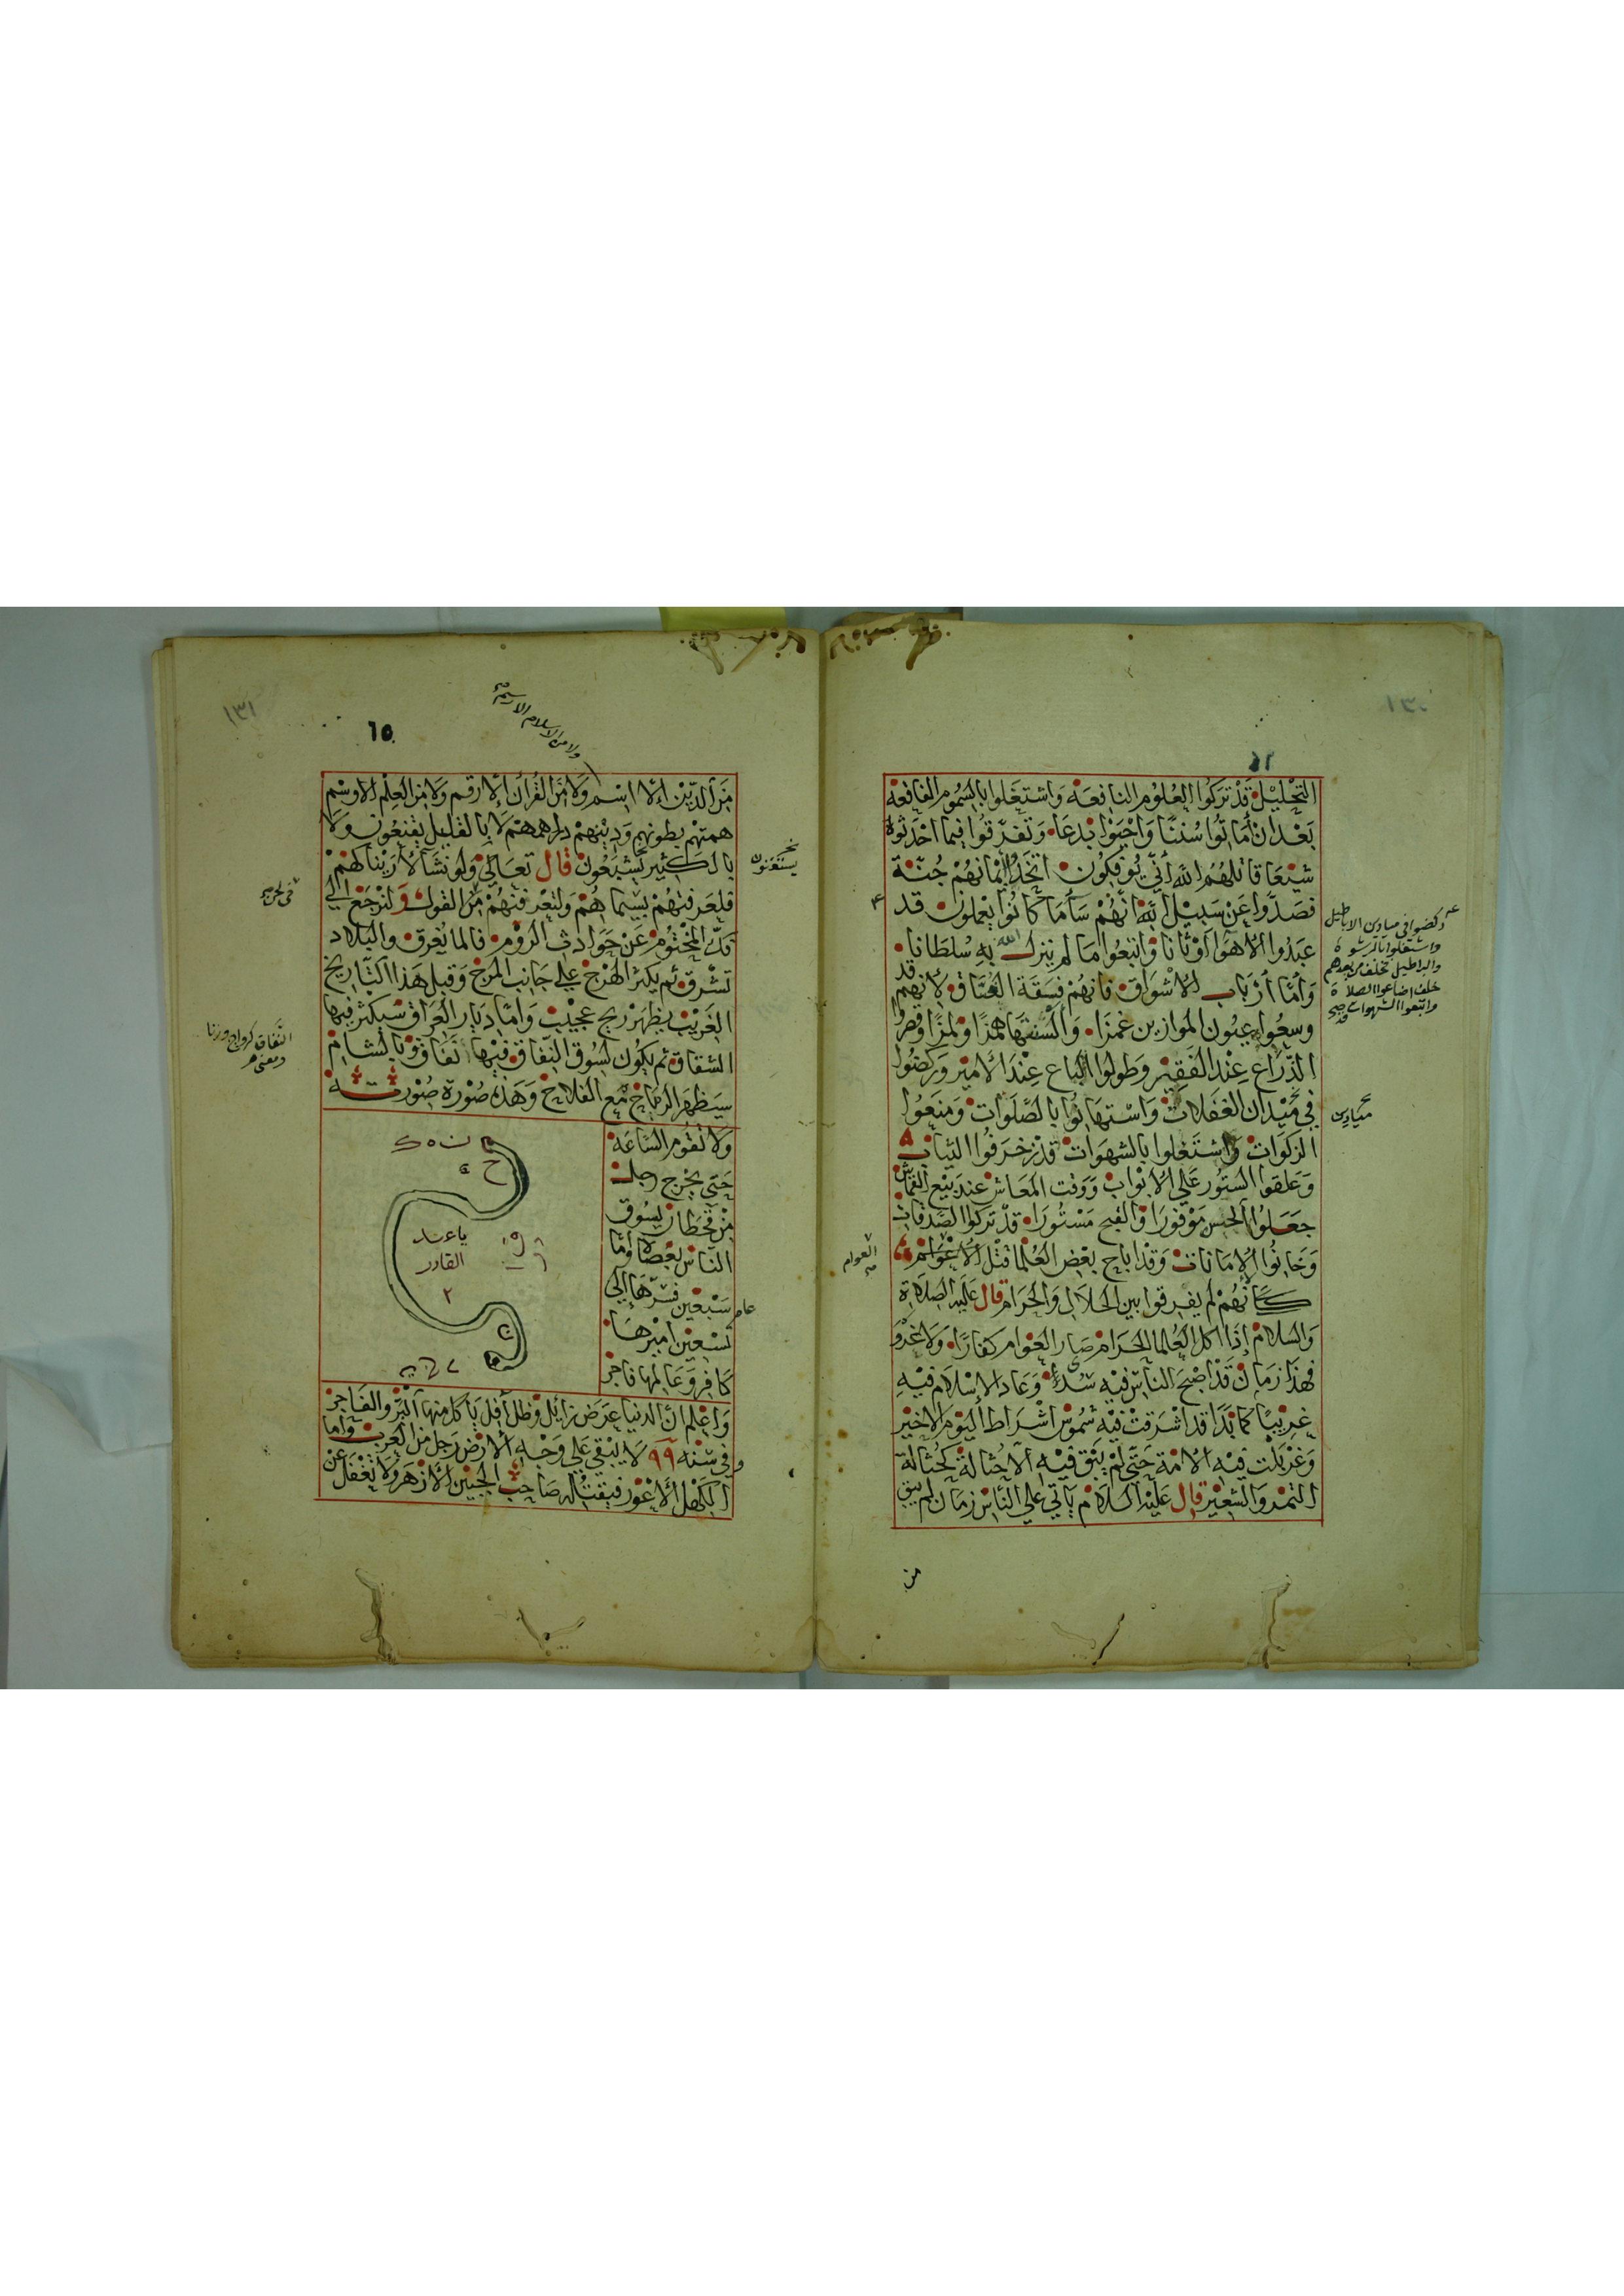 التحليل قد تركوا العلوم النافعة واشتغلوا بالسموم الفاقعة
بعد ان أماتوا سننا واحيوا بدعا وتفرقوا فيما احدثوه
شيعا قاتلهم الله أنى يؤفكون اتخذوا أيمانهم جنة
فصدوا عن سبيل الله انهم سآء ما كانوا يعملون قد
عبدوا الاهوا اوثانا واتبعوا ما لم ينزل الله به سلطانا
وأما أرباب الاشواق فانهم فسقة العشاق لانهم قد
وسعوا عيون الموازين غمزا وألسنتها همزا ولمزا وقصروا
الذراع عند الفقير وطولوا الباع عند الأمير وركضوا
في ميدان الغفلات واستهانوا بالصلوات ومنعوا
الزكوات واشتغلوا بالشهوات قد زخرفوا الثياب
وعلقوا الستور على الابواب ووقت المعاش عند بيع القماش
جعلوا الحسن موفورا والقبح مستورا قد تركوا الصدقات
وخانوا الامانات وقد اباح بعض العلما قتل الأعوام
كأنهم لم يفرقوا بين الحلال والحرام قال عليه الصلاة
والسلام إذا اكل العلما الحرام صار العوام كفارا ولا غرو
فهذا زمان قد اصبح الناس فيه سدى وعاد الاسلام فيه
غريبا كما بدا قد اشرقت فيه شموس اشراط اليوم الاخير
وغربلت فيه الامة حتى لم يبق فيه الا حثالة كحثالة
التمر والشعير قال عليه السلام يأتي على الناس زمان لم يبق
من
ركضوا في ميادين الاباطيل
واشتغلوا بالرشوة
والبراطيل فخلف من بعدهم
خلف اضاعوا الصلاة
واتبعوا الشهوات
ميادين
العوام
١٣١
٦٥
ولا من الاسلام الا رسم
من الدين إلا اسم ولا من القران إلا رقم ولا من العلم الا وسم
همتهم بطونهم ودينهم دراهمهم لا بالقليل يقنعون ولا
بالكثير يشبعون قال تعالى ولو نشآ لأريناكهم
فلعرفتهم بسيماهم ولتعرفنهم في لحن القول ولنرجع الى
فك المختوم عن حوادث الروم فالما يغرق والبلاد
تشرق ثم يكثر الهرج على جانب المرج وقبل هذا التاريخ
الغريب يظهر ريح عجيب وأما ديار العراق سيكثر فيها
الشقاق ثم يكون لسوق النفاق فيها نفاق وبالشام
سيظهر الرماخ مع الفلاخ وهذه صورة صورته
ولا تقوم الساعة
حتى يخرج رجل
من قحطان يسوق
الناس بعصاه وأما
سبعين فشرها إلى
تسعين اميرها
كافر وعالمها فاجر
يا عبد
القادر
٢
واعلم ان الدنيا عرض زايل وظل أفل يأكل منها البر والفاجر
وفي سنه ٩٩ لا يبقى على وجه الارض رجل من العرب واما
الكهل الأعور فيقتله صاحب الجبين الأزهر ولا تغفل عن
يستغنون
عام